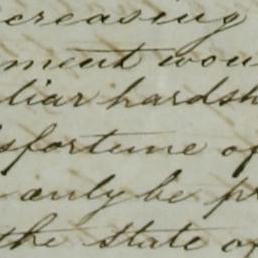 creasing
ment wou
liar hardsh
sfortune of
only be pr
the state of